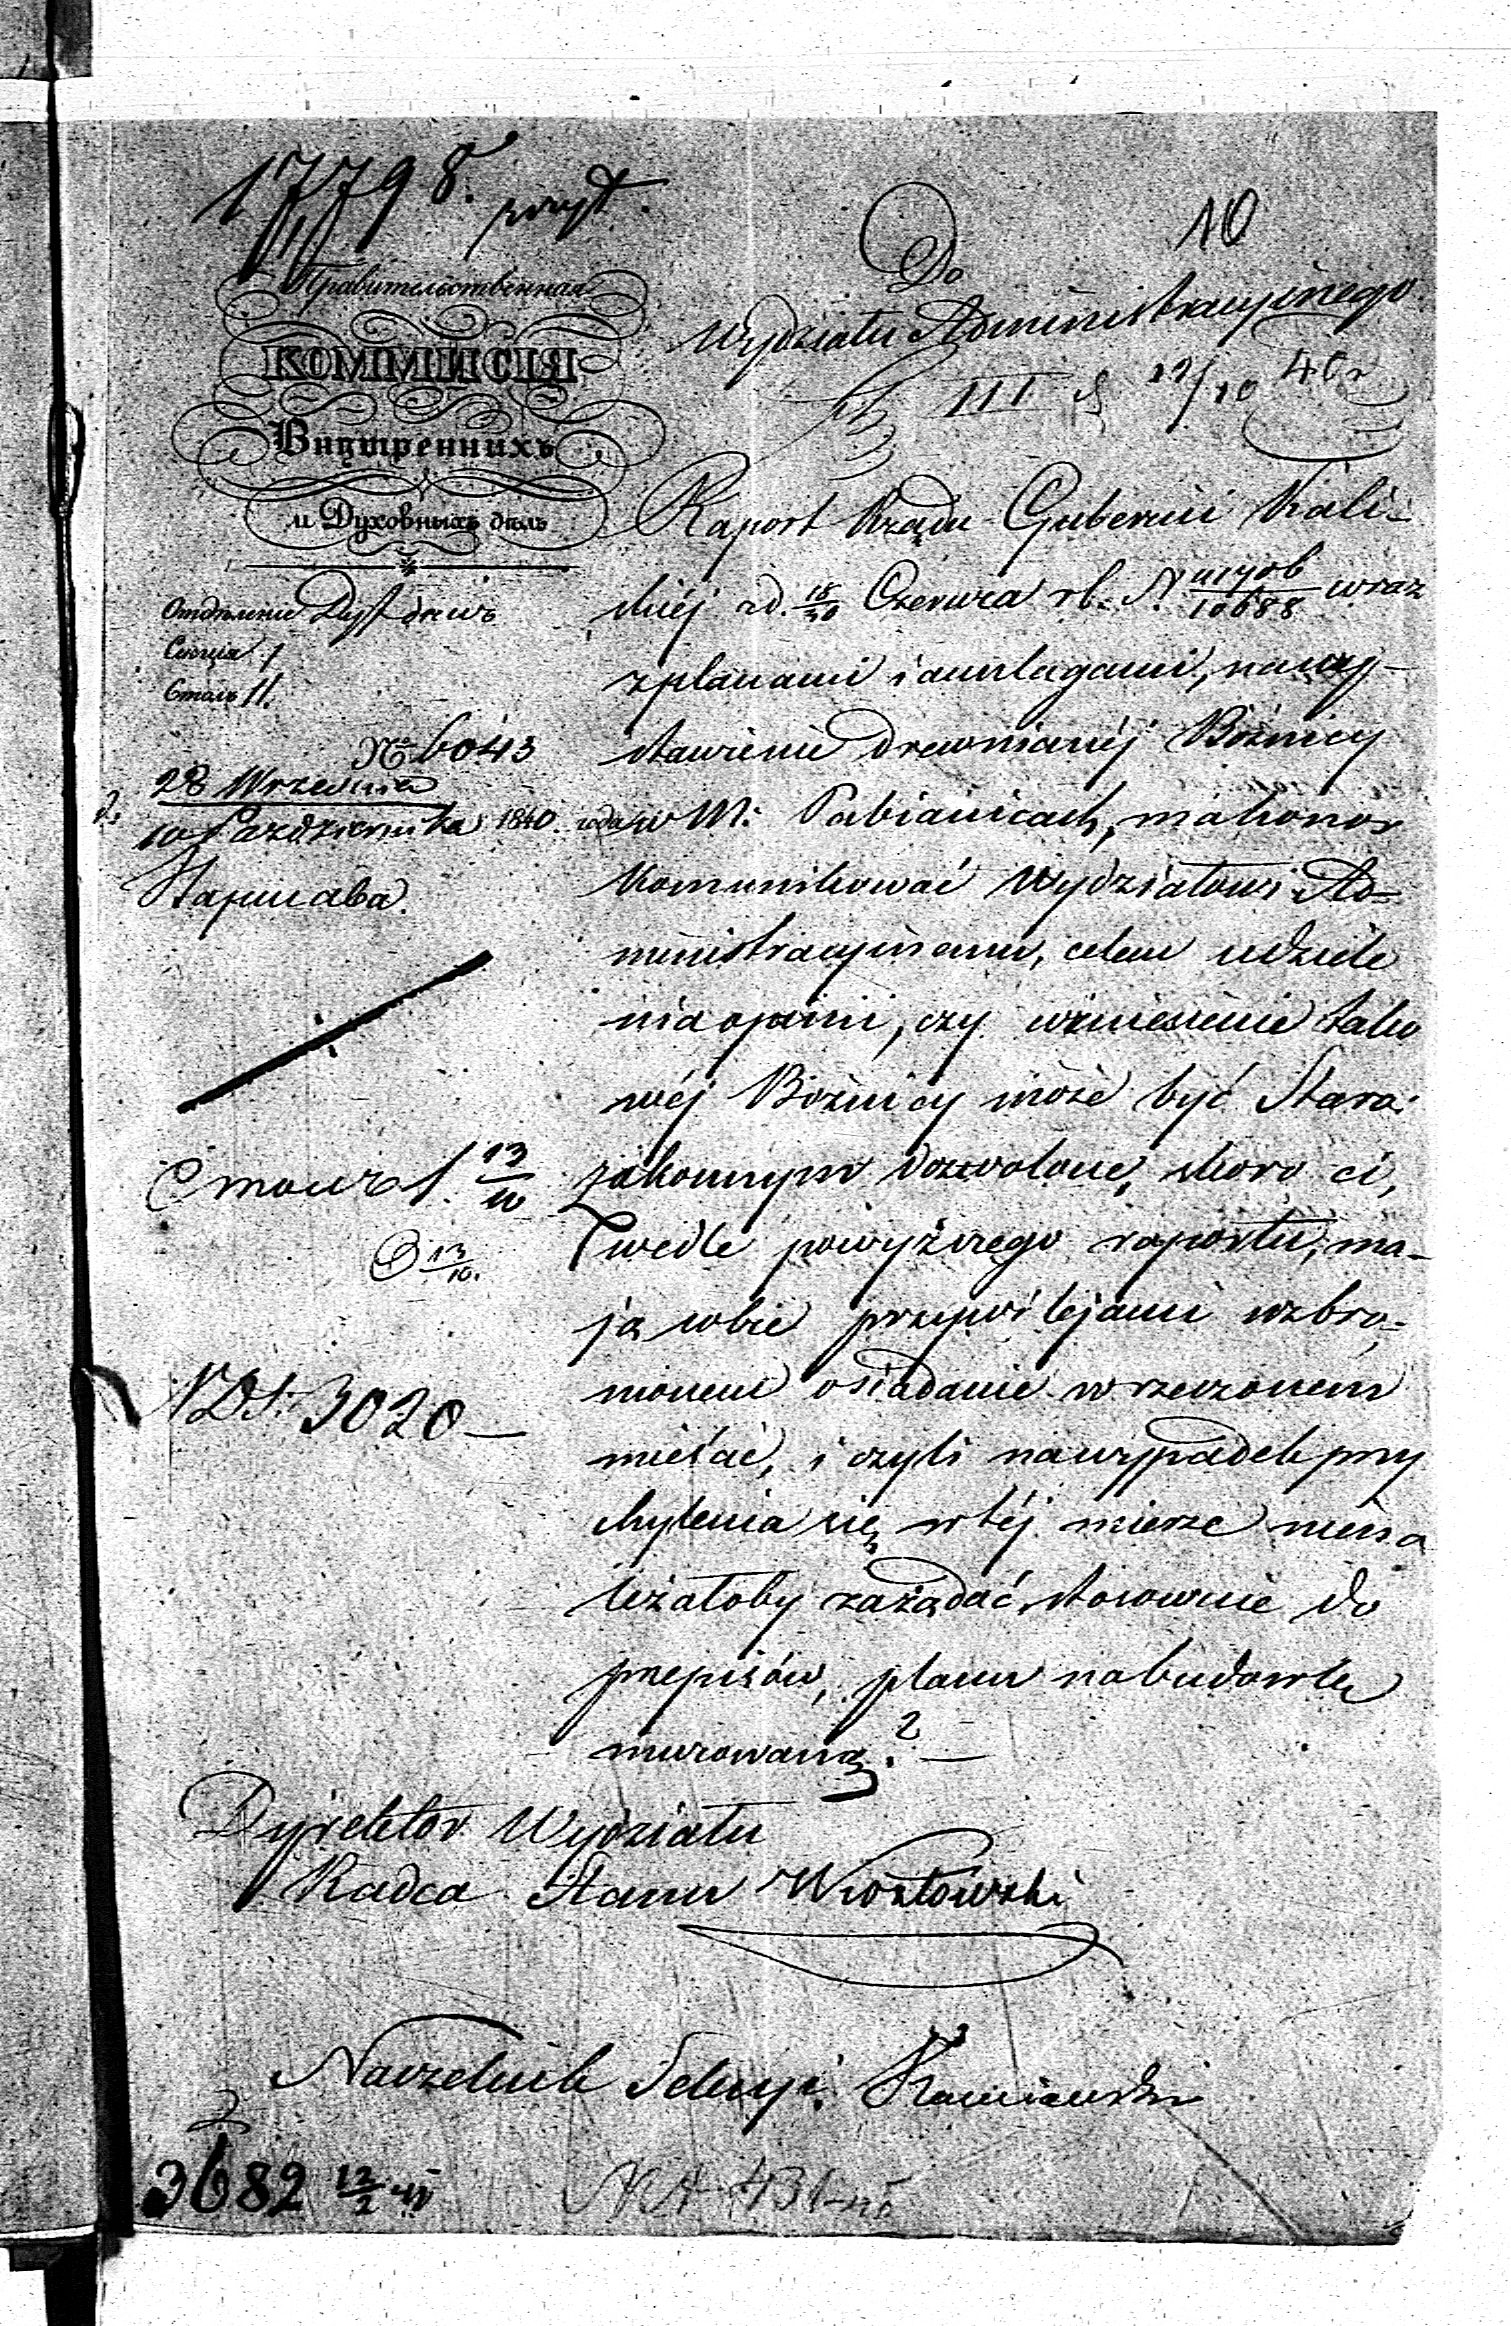 17798.
10
Правительственная
КОММИСІЯ
Внутреннихъ
и Духовныхъ дѣлъ
Отдѣленіе
Секція 1
Столъ 11.
№ 6043
d. 28 Września
10 Października 1840. года
Варшава.
13/10
13/10.
3020—
Do
Wydziału Administracyjnego
III
Raport Rządu Gubernii Kali-
skiéj z d. 18/30 Czerwca rb. N. /10688 wraz
z planami i anszlagami, na wy-
stawienie drewnianéj Bóżnicy
w M. Pabianicach, ma honor
komunikować Wydziałowi Ad-
ministracyjnemu, celem udziele
nia opinii, czy wzniesienie tako
wéj Bóżnicy może być Staro-
zakonnym dozwolone, skoro ci,
wedle powyższego raportu, ma-
ją sobie przywilejami wzbro-
nionem osiadanie w rzeczonem
mieście, i czyli na wypadek przy
chylenia się w téj mierze niena
leżałoby zażądać, stosownie do
przepisów, planu na budowlę
murowaną?—
Dyrektor Wydziału
Radca Stanu
Naczelnik Sekcyi
3682 12/2 41